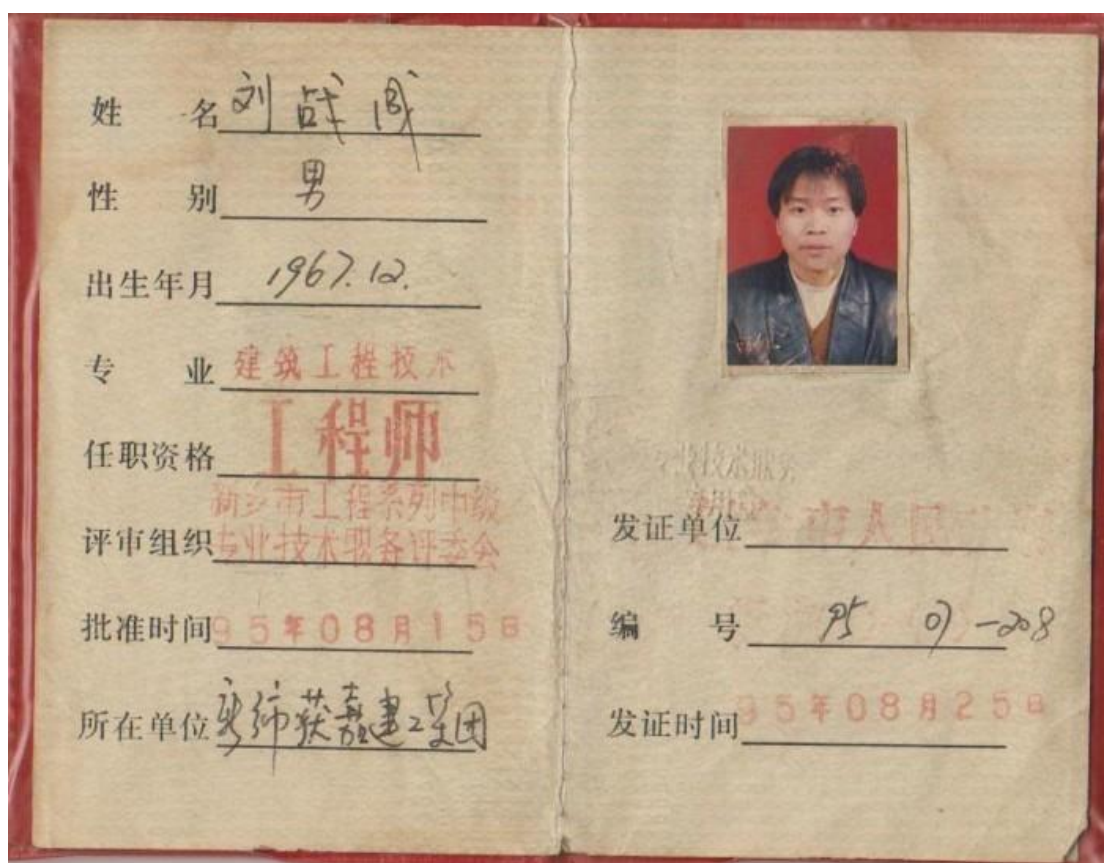 姓 名 刘战国
性 别 男
出生年月 1967.12.
专 业 建筑工程技术
任职资格 工程师
新乡市工程系列中级
评审组织 专业技术职务评委会
批准时间 95年08月15日
所在单位 获嘉建工集团
专业技术职务
发证单位 市人民
编 号 95 07-208
发证时间 95年08月25日